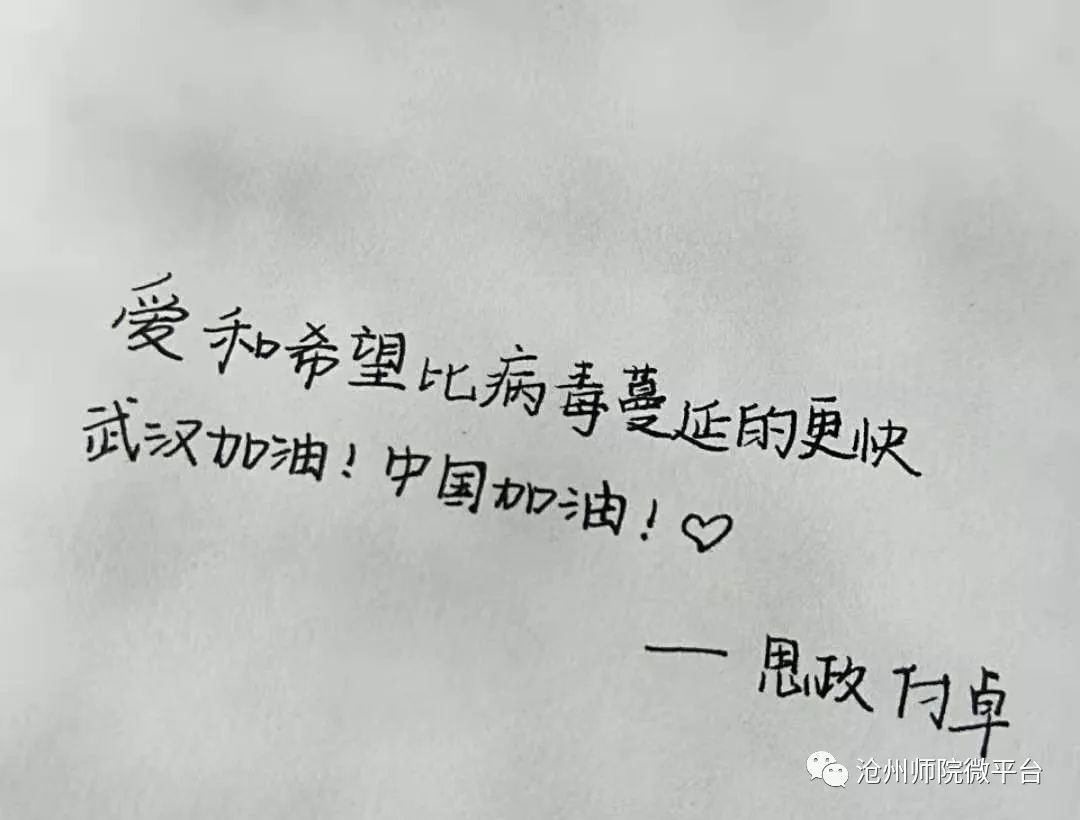 爱和希望比病毒蔓延的更快
武汉加油!中国加油!♡
— 思政 付卓
沧州师院微平台